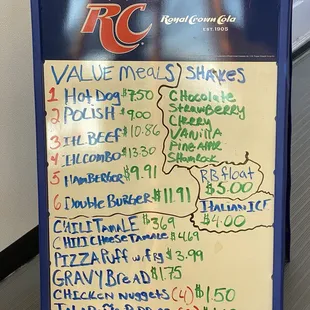 RC
Royal Crown Cola
EST. 1905
VALUE MEALS
1 HOT DOG $7.50
2 POLISH $9.00
3 ITL BEEF $10.86
4 ITL COMBO $13.30
5 HAMBERGOR $9.91
6 DOUBLE BURGER $11.91
SHAKES
CHOCOLATE
STRAWBERRY
CHERRY
VANILLA
PINEAPPLE
SHAMROCK
RB float
$5.00
ITALIAN ICE
$4.00
CHILI TAMALE $3.69
CHILI CHEESE TAMALE $4.69
PIZZA PUFF w/FRY $3.99
GRAVY BREAD $1.75
CHICKEN NUGGETS (4) $1.50